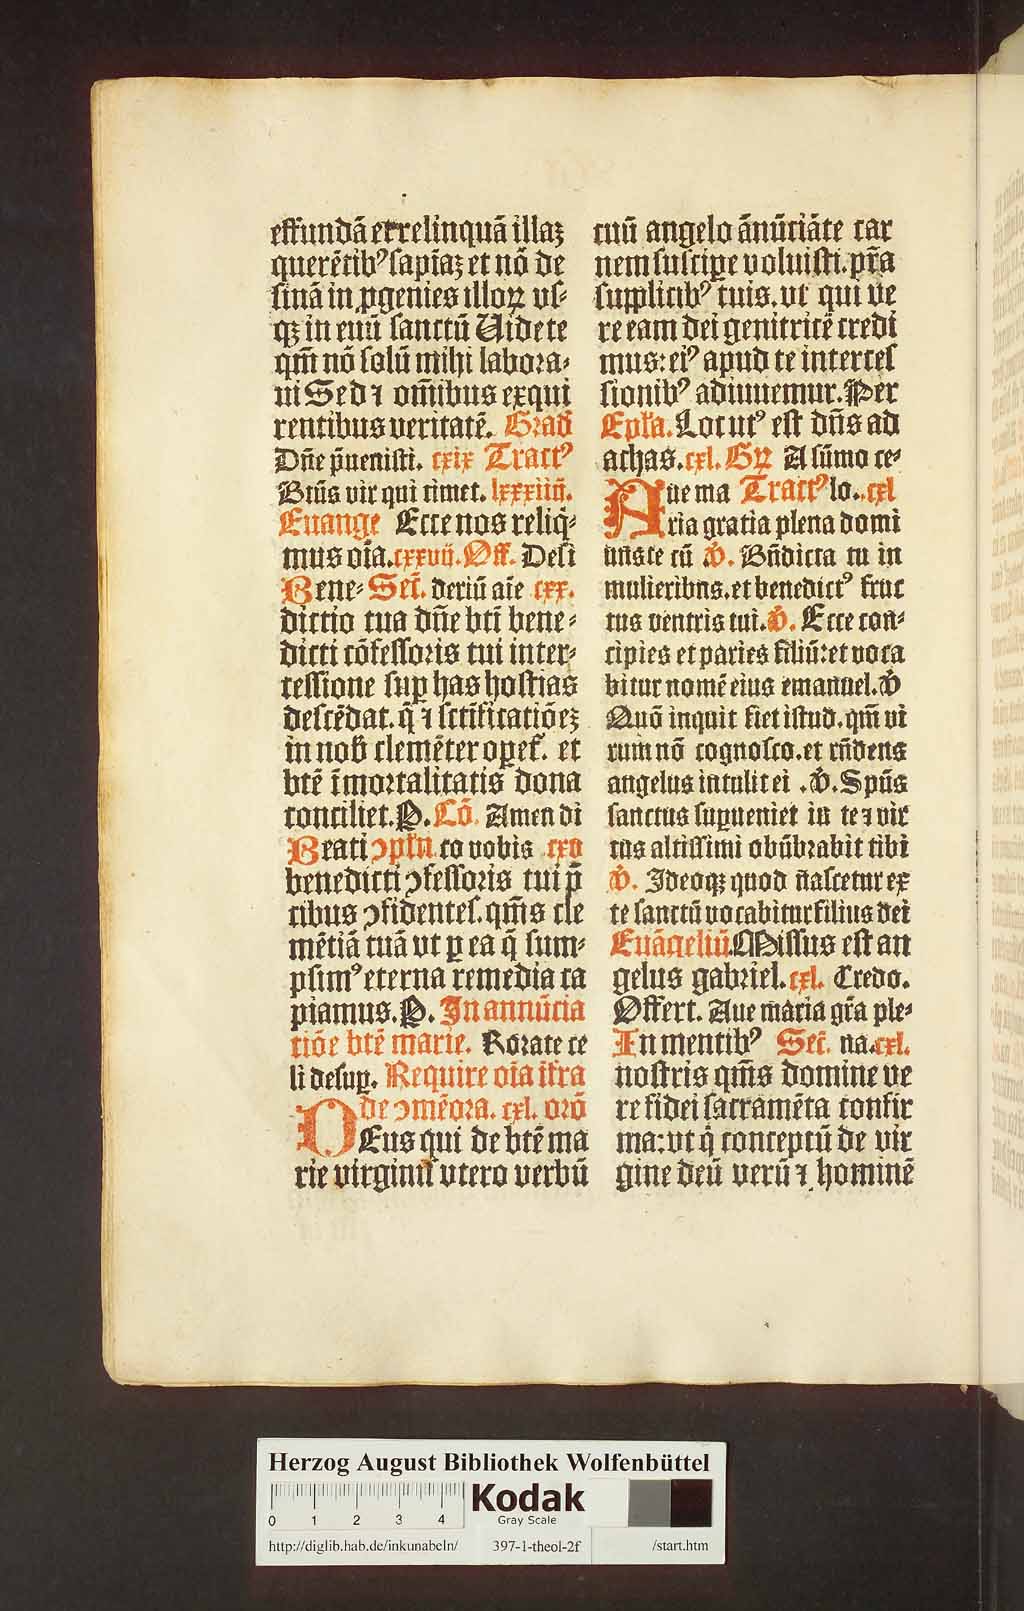 effundā et relinquā illaꝫ
querētibꝰ sapīaꝫ et nō de
sinā in ꝓgenies illoꝝ vs⸗
qꝫ in euū sanctū Uidete
qm̄ nō solū mihi labora⸗
ui Sed ⁊ om̄ibus exqui
rentibus veritatē. Grad̄
Dn̄e p̄uenisti. cxix Tractꝰ
Btūs vir qui timet. lxxxiiij.
Euange Ecce nos reliq̄⸗
mus oīa. cxxvij. Off. Desi
Bene⸗ Sec̄. deriū aīe cxx.
dictio tua dn̄e bt̄i bene⸗
dicti cōfessoris tui inter⸗
cessione suꝑ has hostias
descēdat. q̄ ⁊ sctīficatiōeꝫ
in nob̄ clemēter oꝑet᷑. et
btē īmortalitatis dona
conciliet. P. Cō. Amen di
Beati ↄpl̄n. co vobis cxv
benedicti ↄfessoris tui p̄
cibus ↄfidentes. qm̄s cle
mētiā tuā vt ꝑ ea q̄ sum⸗
psimꝰ eterna remedia ca
piamus. P. In annūcia
tiōe btē marie. Rorate ce
li desuꝑ. Require oīa īfra
de ↄmēora. cxl. orō
DEus qui de btē ma
rie virginis vtero verbū
tuū angelo ānūciāte car
nem suscipe voluisti. pr̄a
supplicibꝰ tuis. vt qui ve
re eam dei genitricē credi
mus: eiꝰ apud te interces
sionibꝰ adiuuemur. Per
Epl̄a. Locutꝰ est dn̄s ad
achas. cxl. Gꝝ A sūmo ce⸗
Aue ma Tractꝰ lo. cxl
ria gratia plena domi
nus te cū .v̄. Bn̄dicta tu in
mulieribus. et benedictꝰ fruc
tus ventris tui. v̄. Ecce con⸗
cipies et paries filiū: et voca
bitur nomē eius emanuel. v̄
Quō inquit fiet istud. qm̄ vi
rum nō cognosco. et rn̄dens
angelus intulit ei .v̄. Spūs
sanctus suꝑueniet in te ⁊ vir
tus altissimi obūbrabit tibi
v̄. Ideoqꝫ quod nascetur ex
te sanctū vocabitur filius dei
Euāgeliū. Missus est an
gelus gabriel. cxl. Credo.
Offert. Aue maria gr̄a ple⸗
In mentibꝰ Sec̄. na. cxl.
nostris qm̄s domine ve
re fidei sacramēta confir
ma: vt q̇ conceptū de vir
gine deū verū ⁊ hominē
Herzog August Bibliothek Wolfenbüttel
0 1 2 3 4
Kodak
Gray Scale
http://diglib.hab.de/inkunabeln/ 397-1-theol-2f /start.htm